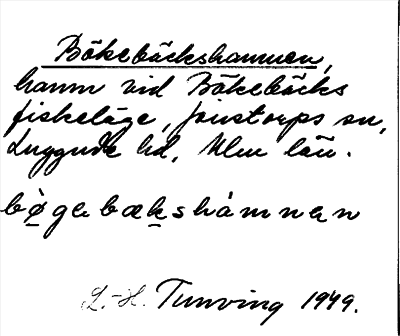 Bökebäckshamnen,
hamn vid Bökebäcks
fiskeläge, Jonstorps sn,
Luggude hd, Mlm län.
bøgebækshamnen
L.-H. Tunving 1949.